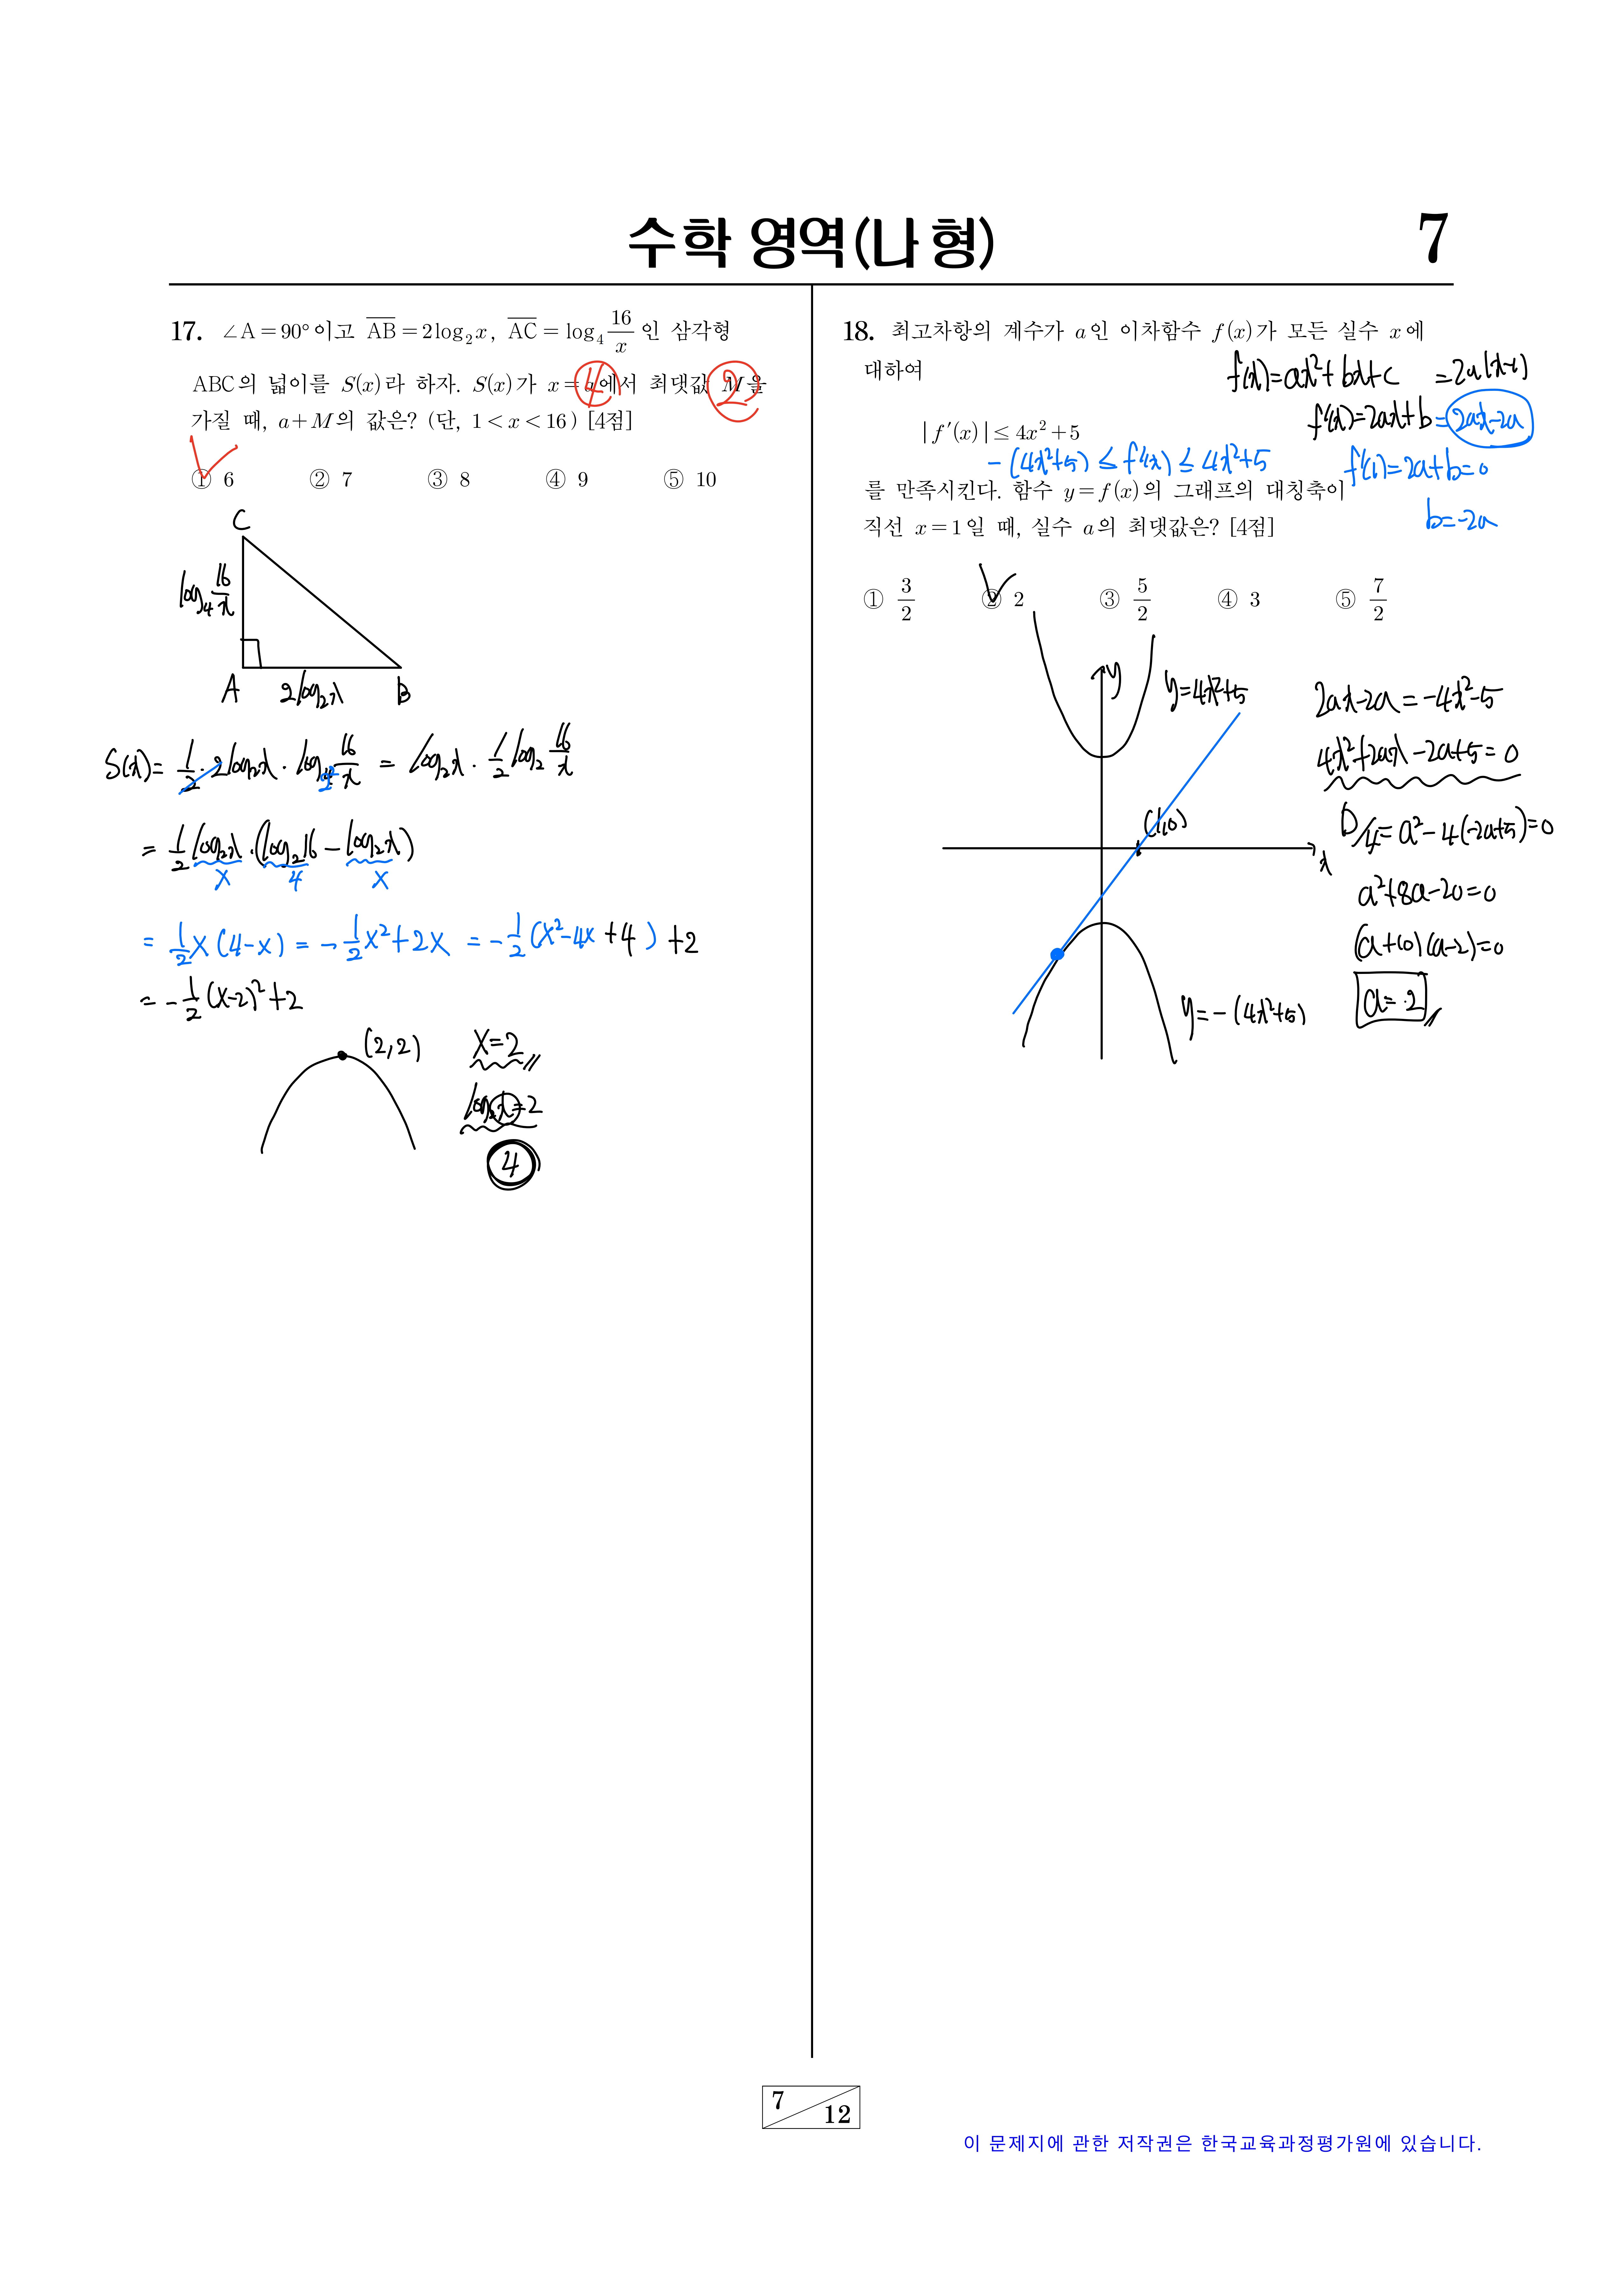 수학 영역(나 형)
7
17. ∠A=90°이고 AB=2log₂x, AC=log₄ 16/x 인 삼각형
ABC의 넓이를 S(x)라 하자. S(x)가 x=a에서 최댓값 M을
가질 때, a+M의 값은? (단, 1<x<16) [4점]
4
2
① 6 ② 7 ③ 8 ④ 9 ⑤ 10
C
log₄ 16/x
A 2log₂x B
S(x)= 1/2 · 2log₂x · log₄ 16/x = log₂x · 1/2 log₂ 16/x
2²
= 1/2 log₂x · (log₂16 − log₂x)
X 4 X
= 1/2 X(4−X) = −1/2 X²+2X = −1/2 (X²−4X+4)+2
= −1/2 (X−2)²+2
(2,2)
X=2
log₂x=2
4
18. 최고차항의 계수가 a인 이차함수 f(x)가 모든 실수 x에
대하여
|f′(x)|≤4x²+5
를 만족시킨다. 함수 y=f(x)의 그래프의 대칭축이
직선 x=1일 때, 실수 a의 최댓값은? [4점]
f(x)=ax²+bx+c =2a(x−1)
f′(x)=2ax+b=2ax−2a
−(4x²+5) ≤ f′(x) ≤ 4x²+5
f′(1)=2a+b=0
b=−2a
① 3/2 ② 2 ③ 5/2 ④ 3 ⑤ 7/2
y
y=4x²+5
(1,0)
x
y=−(4x²+5)
2ax−2a=−4x²−5
4x²+2ax−2a+5=0
D/4=a²−4(−2a+5)=0
a²+8a−20=0
(a+10)(a−2)=0
a=2
7
12
이 문제지에 관한 저작권은 한국교육과정평가원에 있습니다.